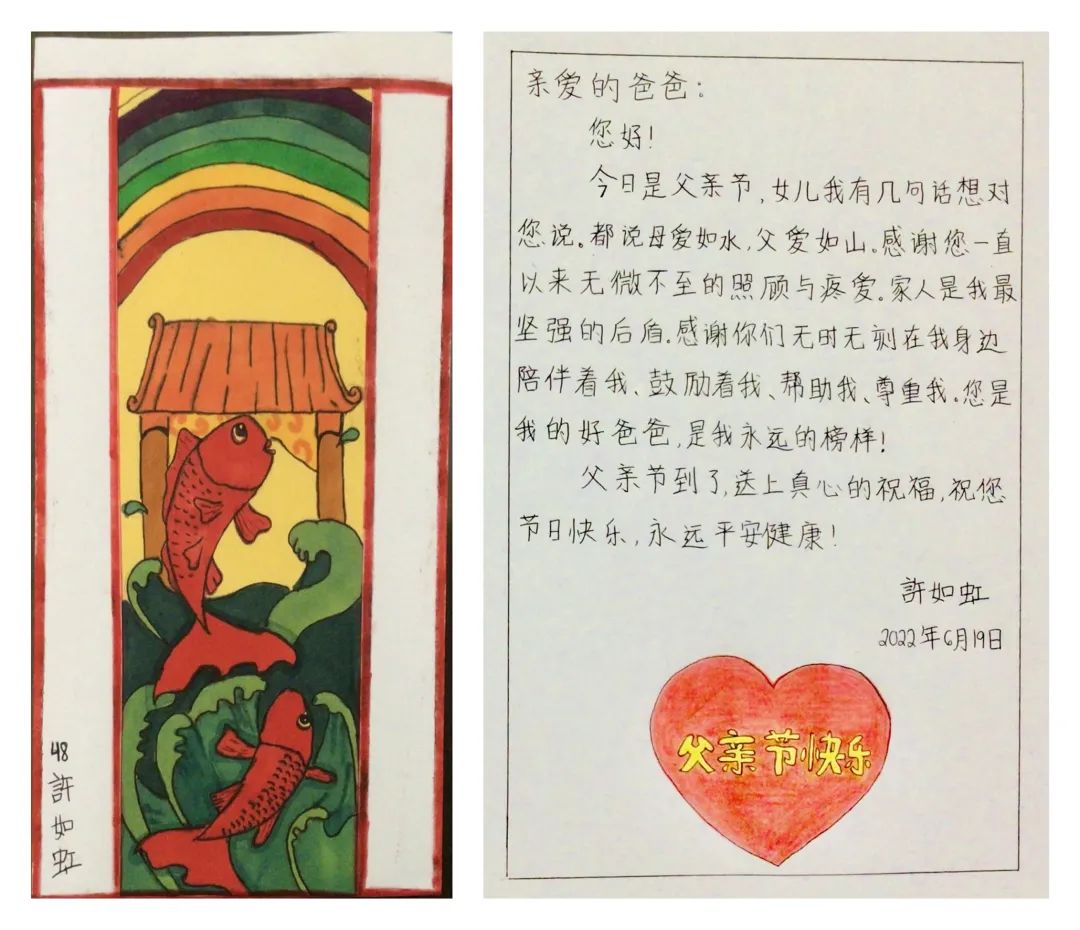 48
許如虹
亲爱的爸爸:
您好!
今日是父亲节,女儿我有几句话想对
您说。都说母爱如水,父爱如山。感谢您一直
以来无微不至的照顾与疼爱。家人是我最
坚强的后盾。感谢你们无时无刻在我身边
陪伴着我、鼓励着我、帮助我、尊重我。您是
我的好爸爸,是我永远的榜样!
父亲节到了,送上真心的祝福,祝您
节日快乐,永远平安健康!
許如虹
2022年6月19日
父亲节快乐